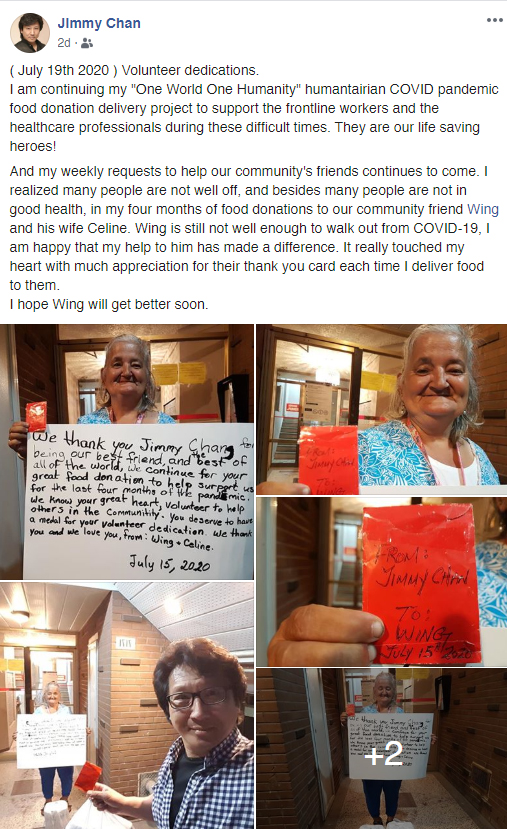 Jimmy Chan
2d ·
( July 19th 2020 ) Volunteer dedications.
I am continuing my "One World One Humanity" humantairian COVID pandemic
food donation delivery project to support the frontline workers and the
healthcare professionals during these difficult times. They are our life saving
heroes!
And my weekly requests to help our community's friends continues to come. I
realized many people are not well off, and besides many people are not in
good health, in my four months of food donations to our community friend Wing
and his wife Celine. Wing is still not well enough to walk out from COVID-19, I
am happy that my help to him has made a difference. It really touched my
heart with much appreciation for their thank you card each time I deliver food
to them.
I hope Wing will get better soon.
We thank you Jimmy Chang for
being our best friend, and the best of
all of the world, we continue for your
great food donation to help surport us
for the last four months of the pandemic.
We know your great heart, volunteer to help
others in the Communitity. you deserve to have
a medal for your volunteer dedication. We thank
you and we love you, from: Wing + Celine.
July 15, 2020
FROM:
Jimmy Chan
To:
FROM:
JIMMY CHAN
To:
WING
JULY 15th 2020
+2